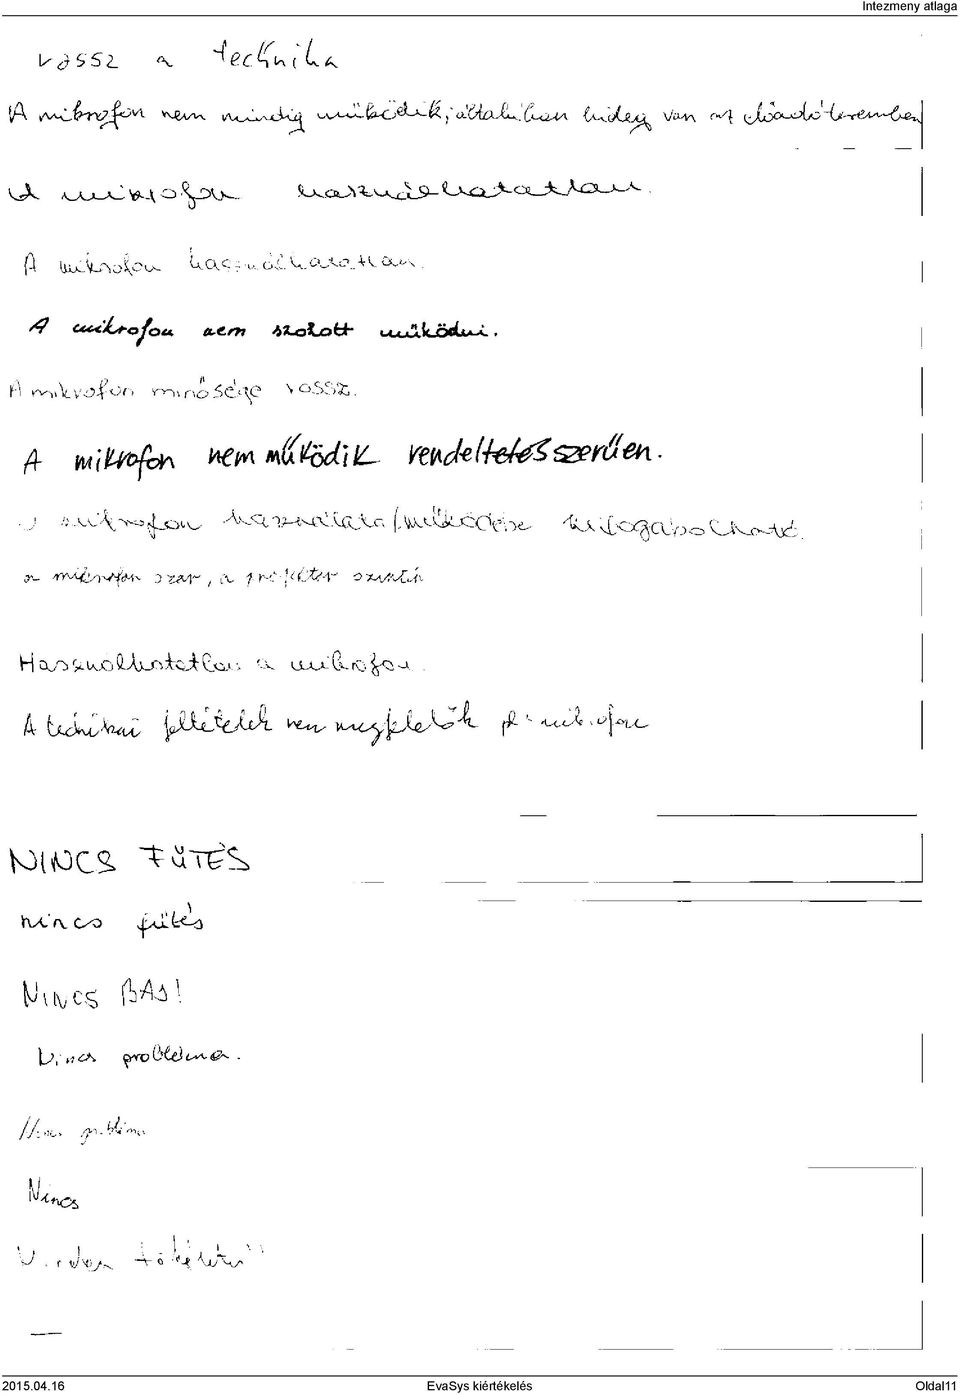 Intezmeny atlaga
rossz a technika
A mikrofon nem mindig működik; általában hideg van az előadóteremben
A mikrofon használhatatlan.
A mikrofon használhatatlan.
A mikrofon nem szokott működni.
A mikrofon minősége rossz.
A mikrofon nem működik rendeltetésszerűen.
mikrofon használata/működése kifogásolható.
a mikrofon szar, a projektor szintén
Használhatatlan a mikrofon.
A technikai feltételek nem megfelelők pl: mikrofon
NINCS FŰTÉS
nincs fűtés
NINCS BAJ!
Nincs probléma.
Nincs probléma
Nincs
Minden tökéletes
2015.04.16 EvaSys kiértékelés Oldal11